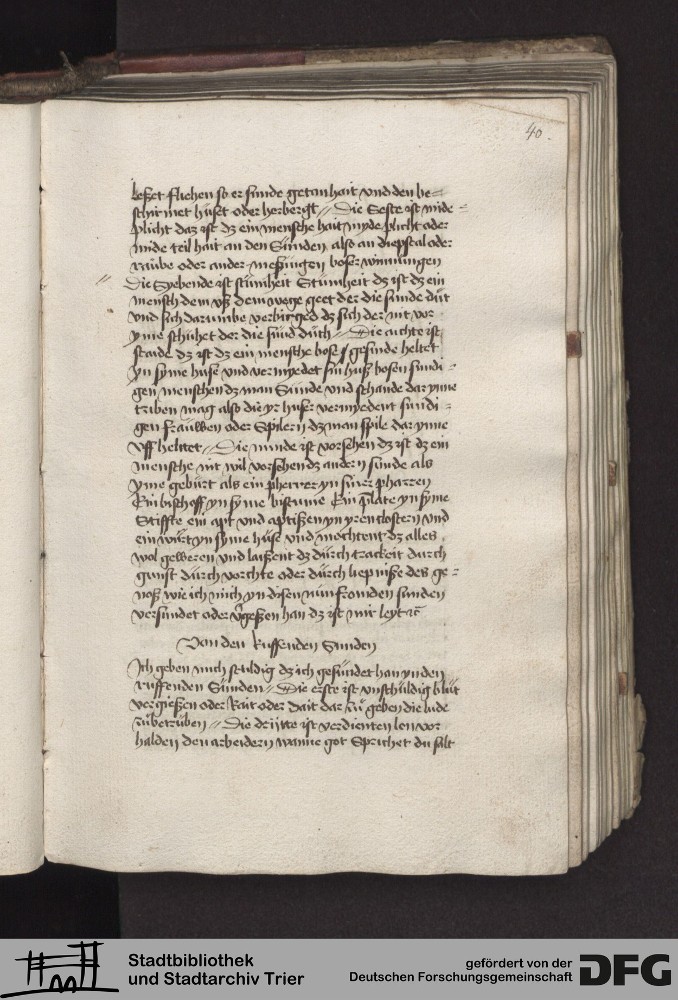 40.
leßet fliehen so er sunde getan hait vnd den be=
schirmet huset oder herbergt // Die Seste ist mide=
plicht daz ist dz ein mensche hait myde plicht oder
mide teil hait an den Sunden. also an diepstal oder
raube oder ander meßungen boser winnungen
// Die Syebende ist stümheit Stümheit dz ist dz ein
mensch dem vß dem wege geet der die sunde düt
vnd sich darumbe verbirget dz sich der nit vor
yme schuhet der die sünd düth // Die aichte ist
staide dz ist dz ein mensche bose gesinde heltet
yn syme huse vnd vermyedet sin huß bosen sundi=
gen menschen dz man Sunde vnd schande dar ynne
triben mag also die yr huser vermyedent sundi=
gen frauwen oder Spilern dz man spile dar ynne
vff heltet // Die nunde ist vorsehen dz ist dz ein
mensche nit wil vorsehen dz andern sunde als
yme geburt als ein pherrer yn siner pharren
Ein bischoff yn syme bistume Ein plate yn syme
Stiffte ein apt vnd aptißen yn yren clostern vnd
ein wirt yn syme huse vnd mochtent dz alles
wol geweren vnd laißent dz durch trackeit durch
gunst durch vorchte oder durch liepniße des ge=
noß wie ich mich yn disen nün fromden sunden
versundet oder vergeßen han dz ist mir leyt ec
Von den Ruffenden Sunden
Ich geben mich schuldig dz ich gesundet han yn den
ruffenden Sunden // Die erste ist vnschuldig blut
vergießen oder Rait oder dait dar zu geben die lude
zu betruben // Die dritte ist verdienten lon vor
halden den arbeidern wanne got Sprichet du salt
Stadtbibliothek
und Stadtarchiv Trier
gefördert von der
Deutschen Forschungsgemeinschaft
DFG